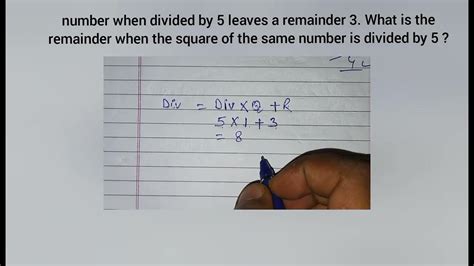 number when divided by 5 leaves a remainder 3. What is the
remainder when the square of the same number is divided by 5 ?
Div = Div × Q + R
5 × 1 + 3
= 8